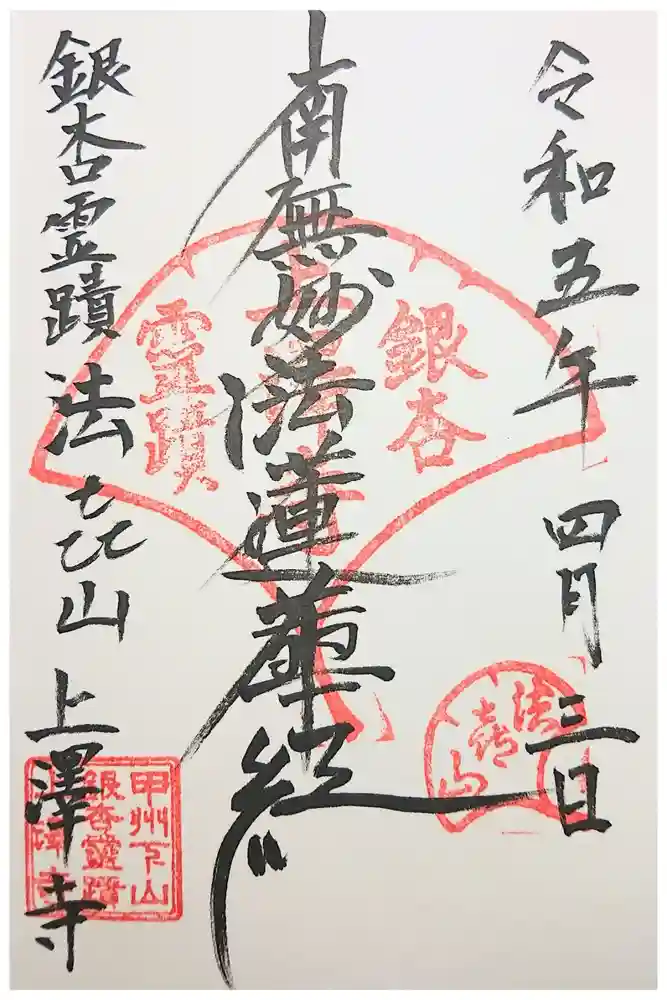 令和五年 四月 三日
南無妙法蓮華経
銀杏霊蹟 法㐂山 上澤寺
銀杏
霊蹟
法喜山
甲州下山
銀杏霊蹟
上澤寺